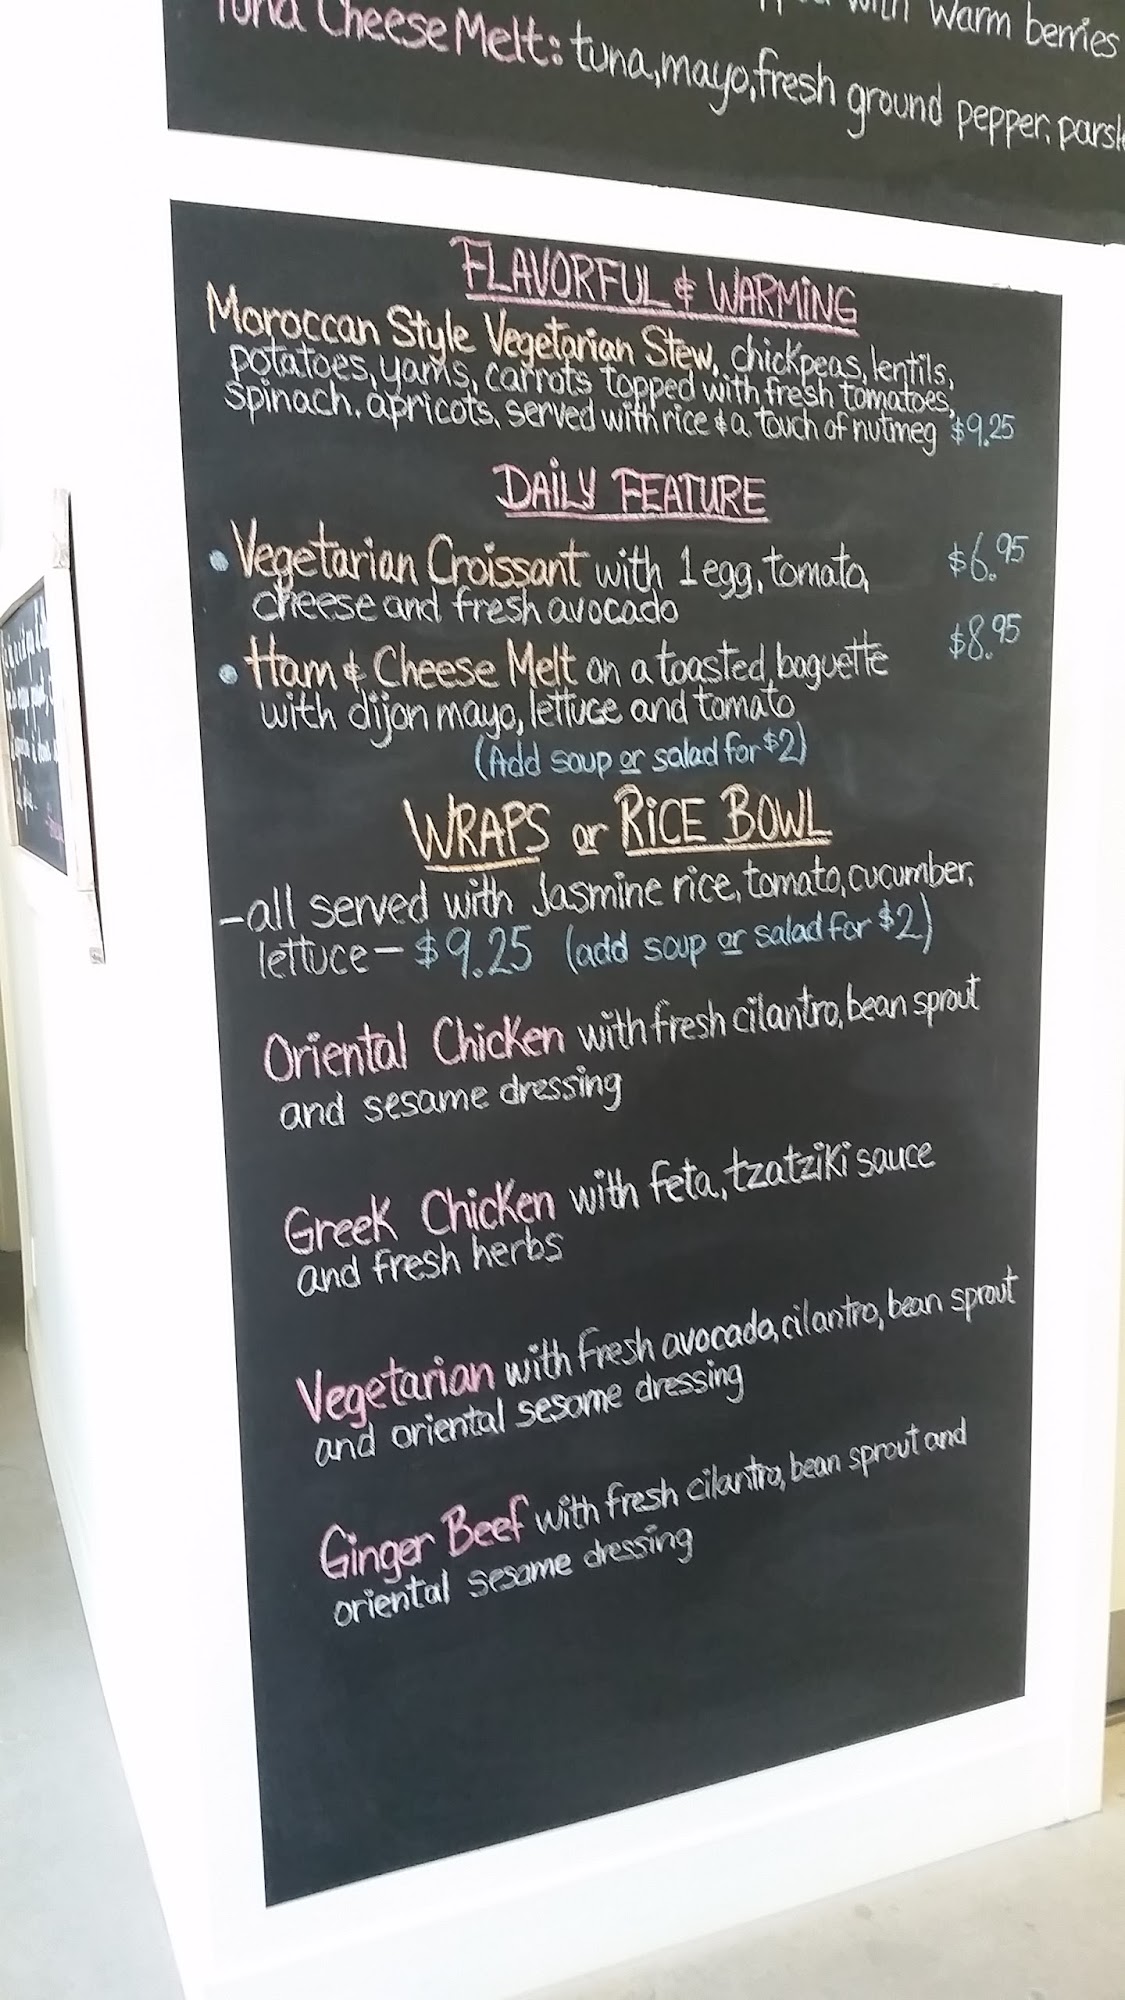 with warm berries
Tuna Cheese Melt: tuna, mayo, fresh ground pepper, parsl
FLAVORFUL & WARMING
Moroccan Style Vegetarian Stew, chickpeas, lentils,
potatoes, yams, carrots topped with fresh tomatoes,
spinach, apricots, served with rice & a touch of nutmeg $9.25
DAILY FEATURE
• Vegetarian Croissant with 1 egg, tomato, $6.95
cheese and fresh avocado
• Ham & Cheese Melt on a toasted baguette $8.95
with dijon mayo, lettuce and tomato
(Add soup or salad for $2)
WRAPS or RICE BOWL
- all served with Jasmine rice, tomato, cucumber,
lettuce - $9.25 (add soup or salad for $2)
Oriental Chicken with fresh cilantro, bean sprout
and sesame dressing
Greek Chicken with feta, tzatziki sauce
and fresh herbs
Vegetarian with fresh avocado, cilantro, bean sprout
and oriental sesame dressing
Ginger Beef with fresh cilantro, bean sprout and
oriental sesame dressing